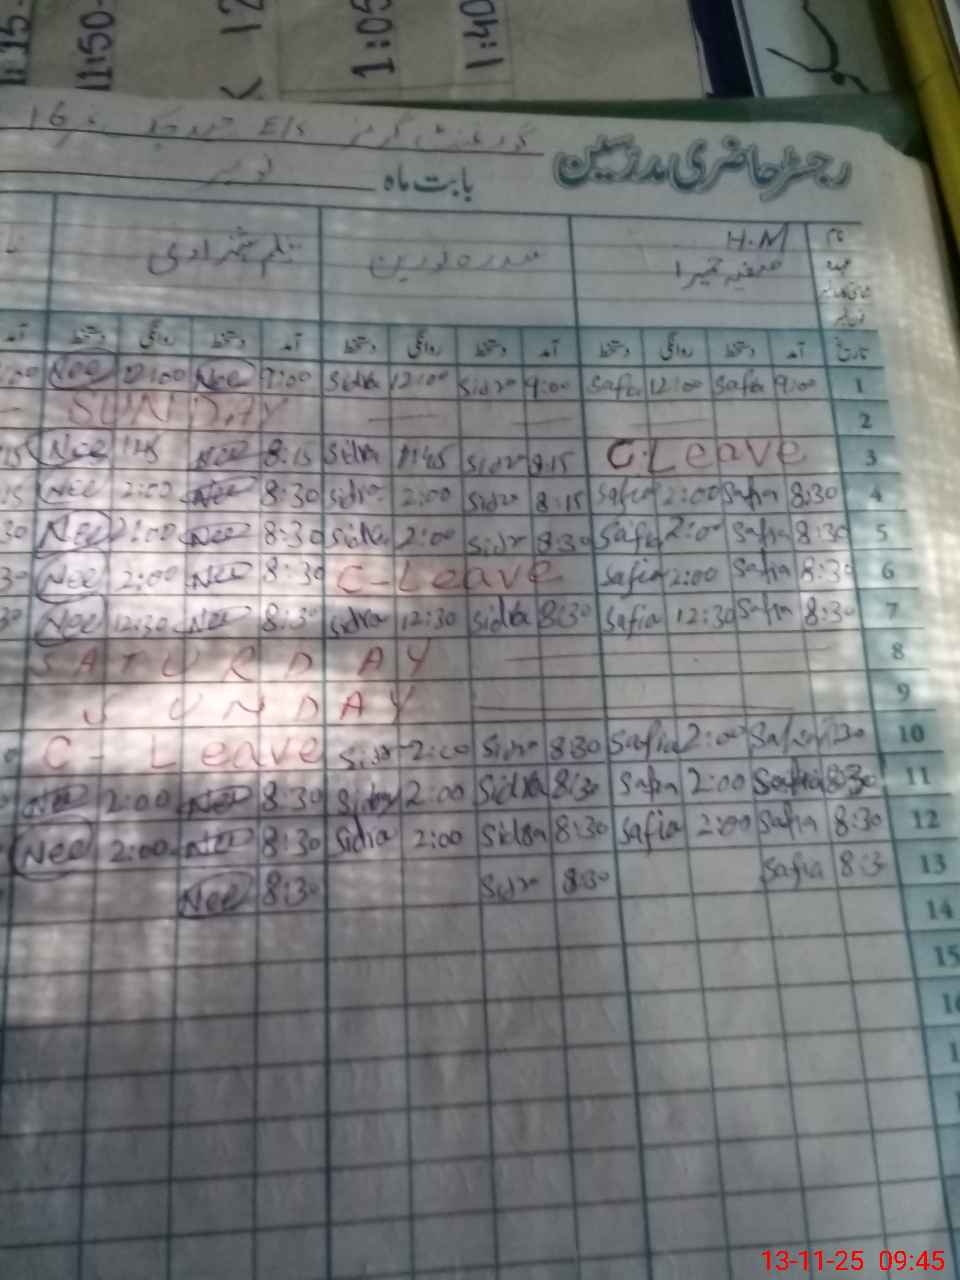 1:15-
11:50-
K 12
1:05
1:40
گورنمنٹ گرلز E/S
16
رجسٹر حاضری مدرسین
بابت ماہ نومبر
نام H.M
عہدہ صفیہ حمیرا سدرہ نورین نیلم شہزادی
تاریخ آمد دستخط روانگی دستخط آمد دستخط روانگی دستخط آمد دستخط روانگی دستخط آمد
1 9:00 Safia 12:00 Safia 9:00 Sidra 12:00 Sidra 9:00 Nee 12:00 Nee :00
2 SUNDAY
3 C.Leave 8:15 Sidra 1:45 Sidra 8:15 Nee 1:45 Nee 15
4 8:30 Safia 2:00 Safia 8:15 Sidra 2:00 Sidra 8:30 Nee 2:00 Nee 15
5 8:30 Safia 2:00 Safia 8:30 Sidra 2:00 Sidra 8:30 Nee 2:00 Nee 30
6 8:30 Safia 2:00 Safia C-Leave 8:30 Nee 2:00 Nee 30
7 8:30 Safia 12:30 Safia 8:30 Sidra 12:30 Sidra 8:30 Nee 12:30 Nee 30
8 SATURDAY
9 SUNDAY
10 Safia 2:00 Safia 8:30 Sidra 2:00 Sidra C-Leave
11 8:30 Safia 2:00 Safia 8:30 Sidra 2:00 Sidra 8:30 Nee 2:00 Nee
12 8:30 Safia 2:00 Safia 8:30 Sidra 2:00 Sidra 8:30 Nee 2:00 Nee
13 8:30 Safia 8:30 Sidra 8:30 Nee
14
15
13-11-25 09:45